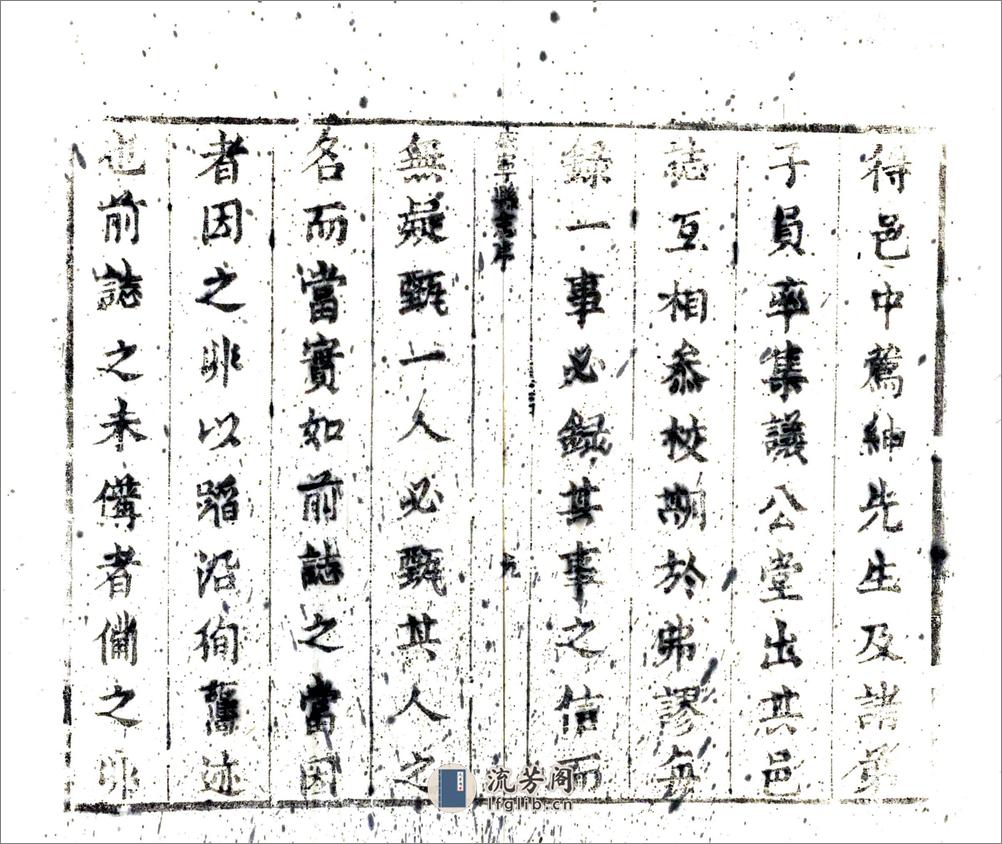 得邑中薦紳先生及諸弟
子員率集議公堂出其邑
誌互相叅校期於弗謬每
錄一事必録其事之信而
縣志序
無疑甄一人必甄其人之
名而當實如前誌之當因
者因之非以蹈沿徇舊迹
也前誌之未備者備之非
流芳阁
lfglib.cn